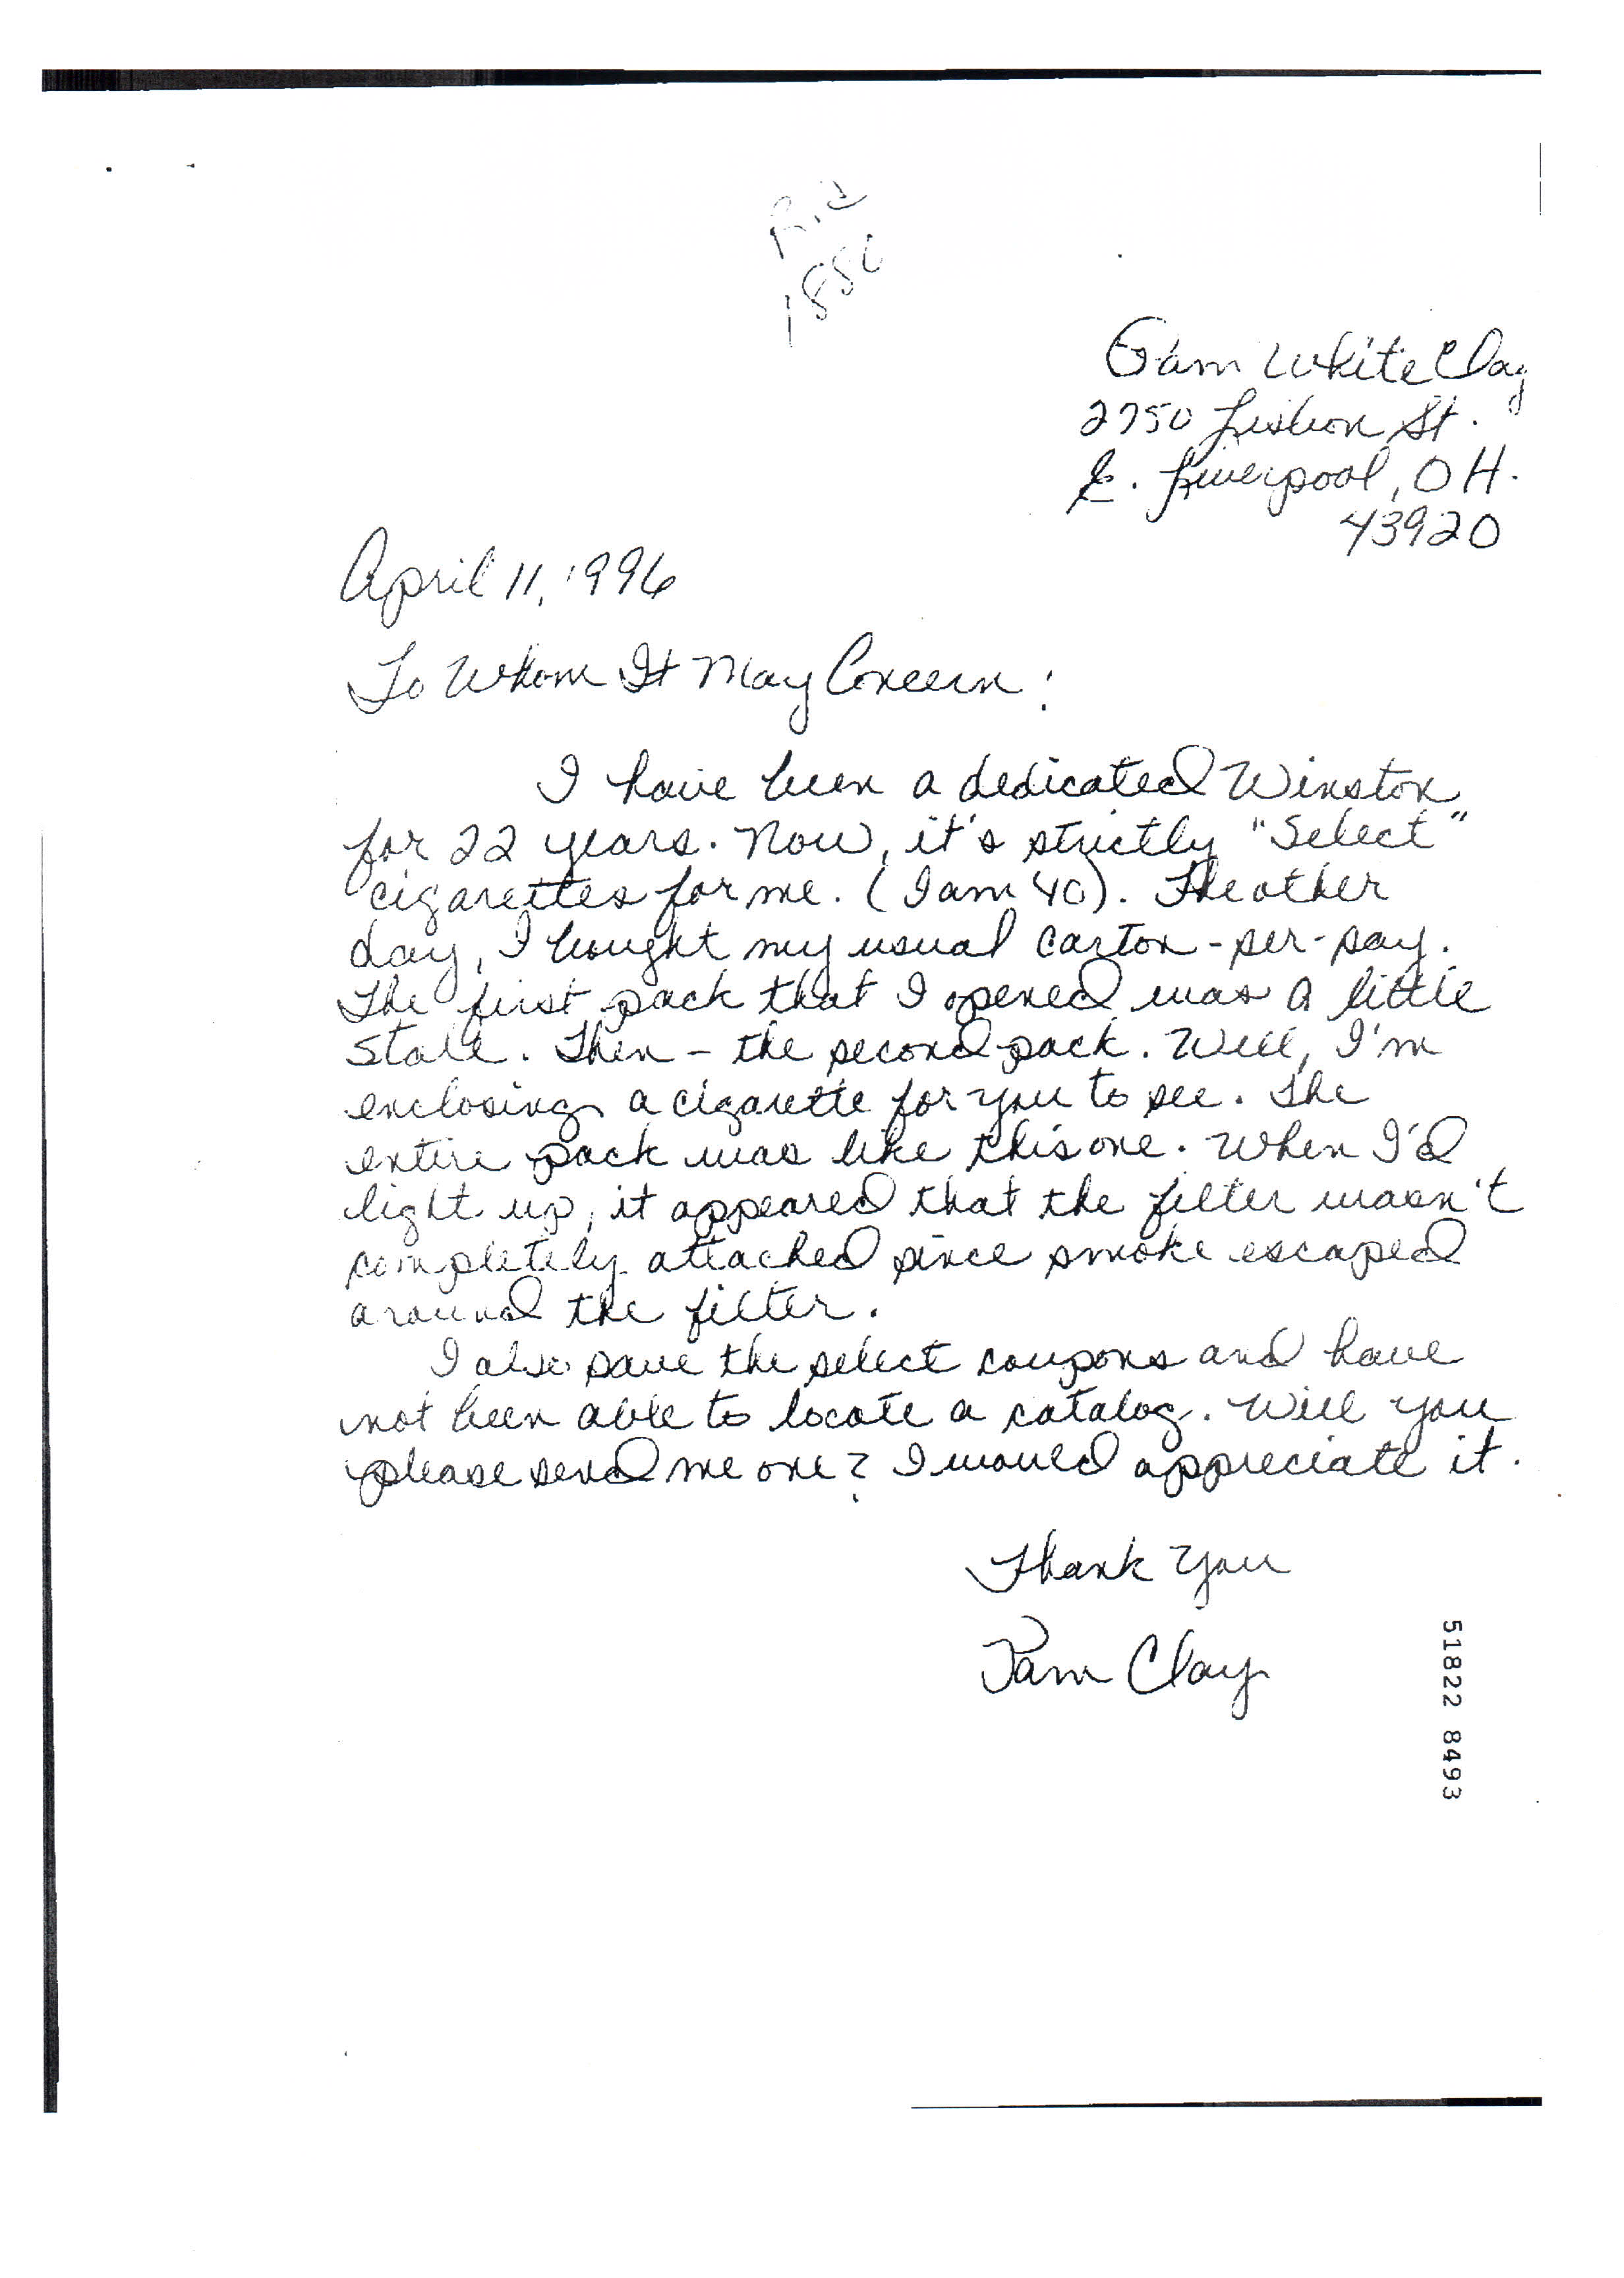 Pam White Clay
2750 Lisbon St.
E. Liverpool, OH.
43920
April 11, 1996
To Whom It May Concern:
I have been a dedicated Winston
for 22 years. Now, it's strictly "Select"
cigarettes for me. (I am 40). The other
day, I bought my usual carton-per-pay.
The first pack that I opened was a little
stale. Then - the second pack. Well, I'm
enclosing a cigarette for you to see. The
entire pack was like this one. When I'd
light up, it appeared that the filter wasn't
completely attached since smoke escaped
around the filter.
I also save the select coupons and have
not been able to locate a catalog. Will you
please send me one? I would appreciate it.
Thank You
Pam Clay
51822 8493